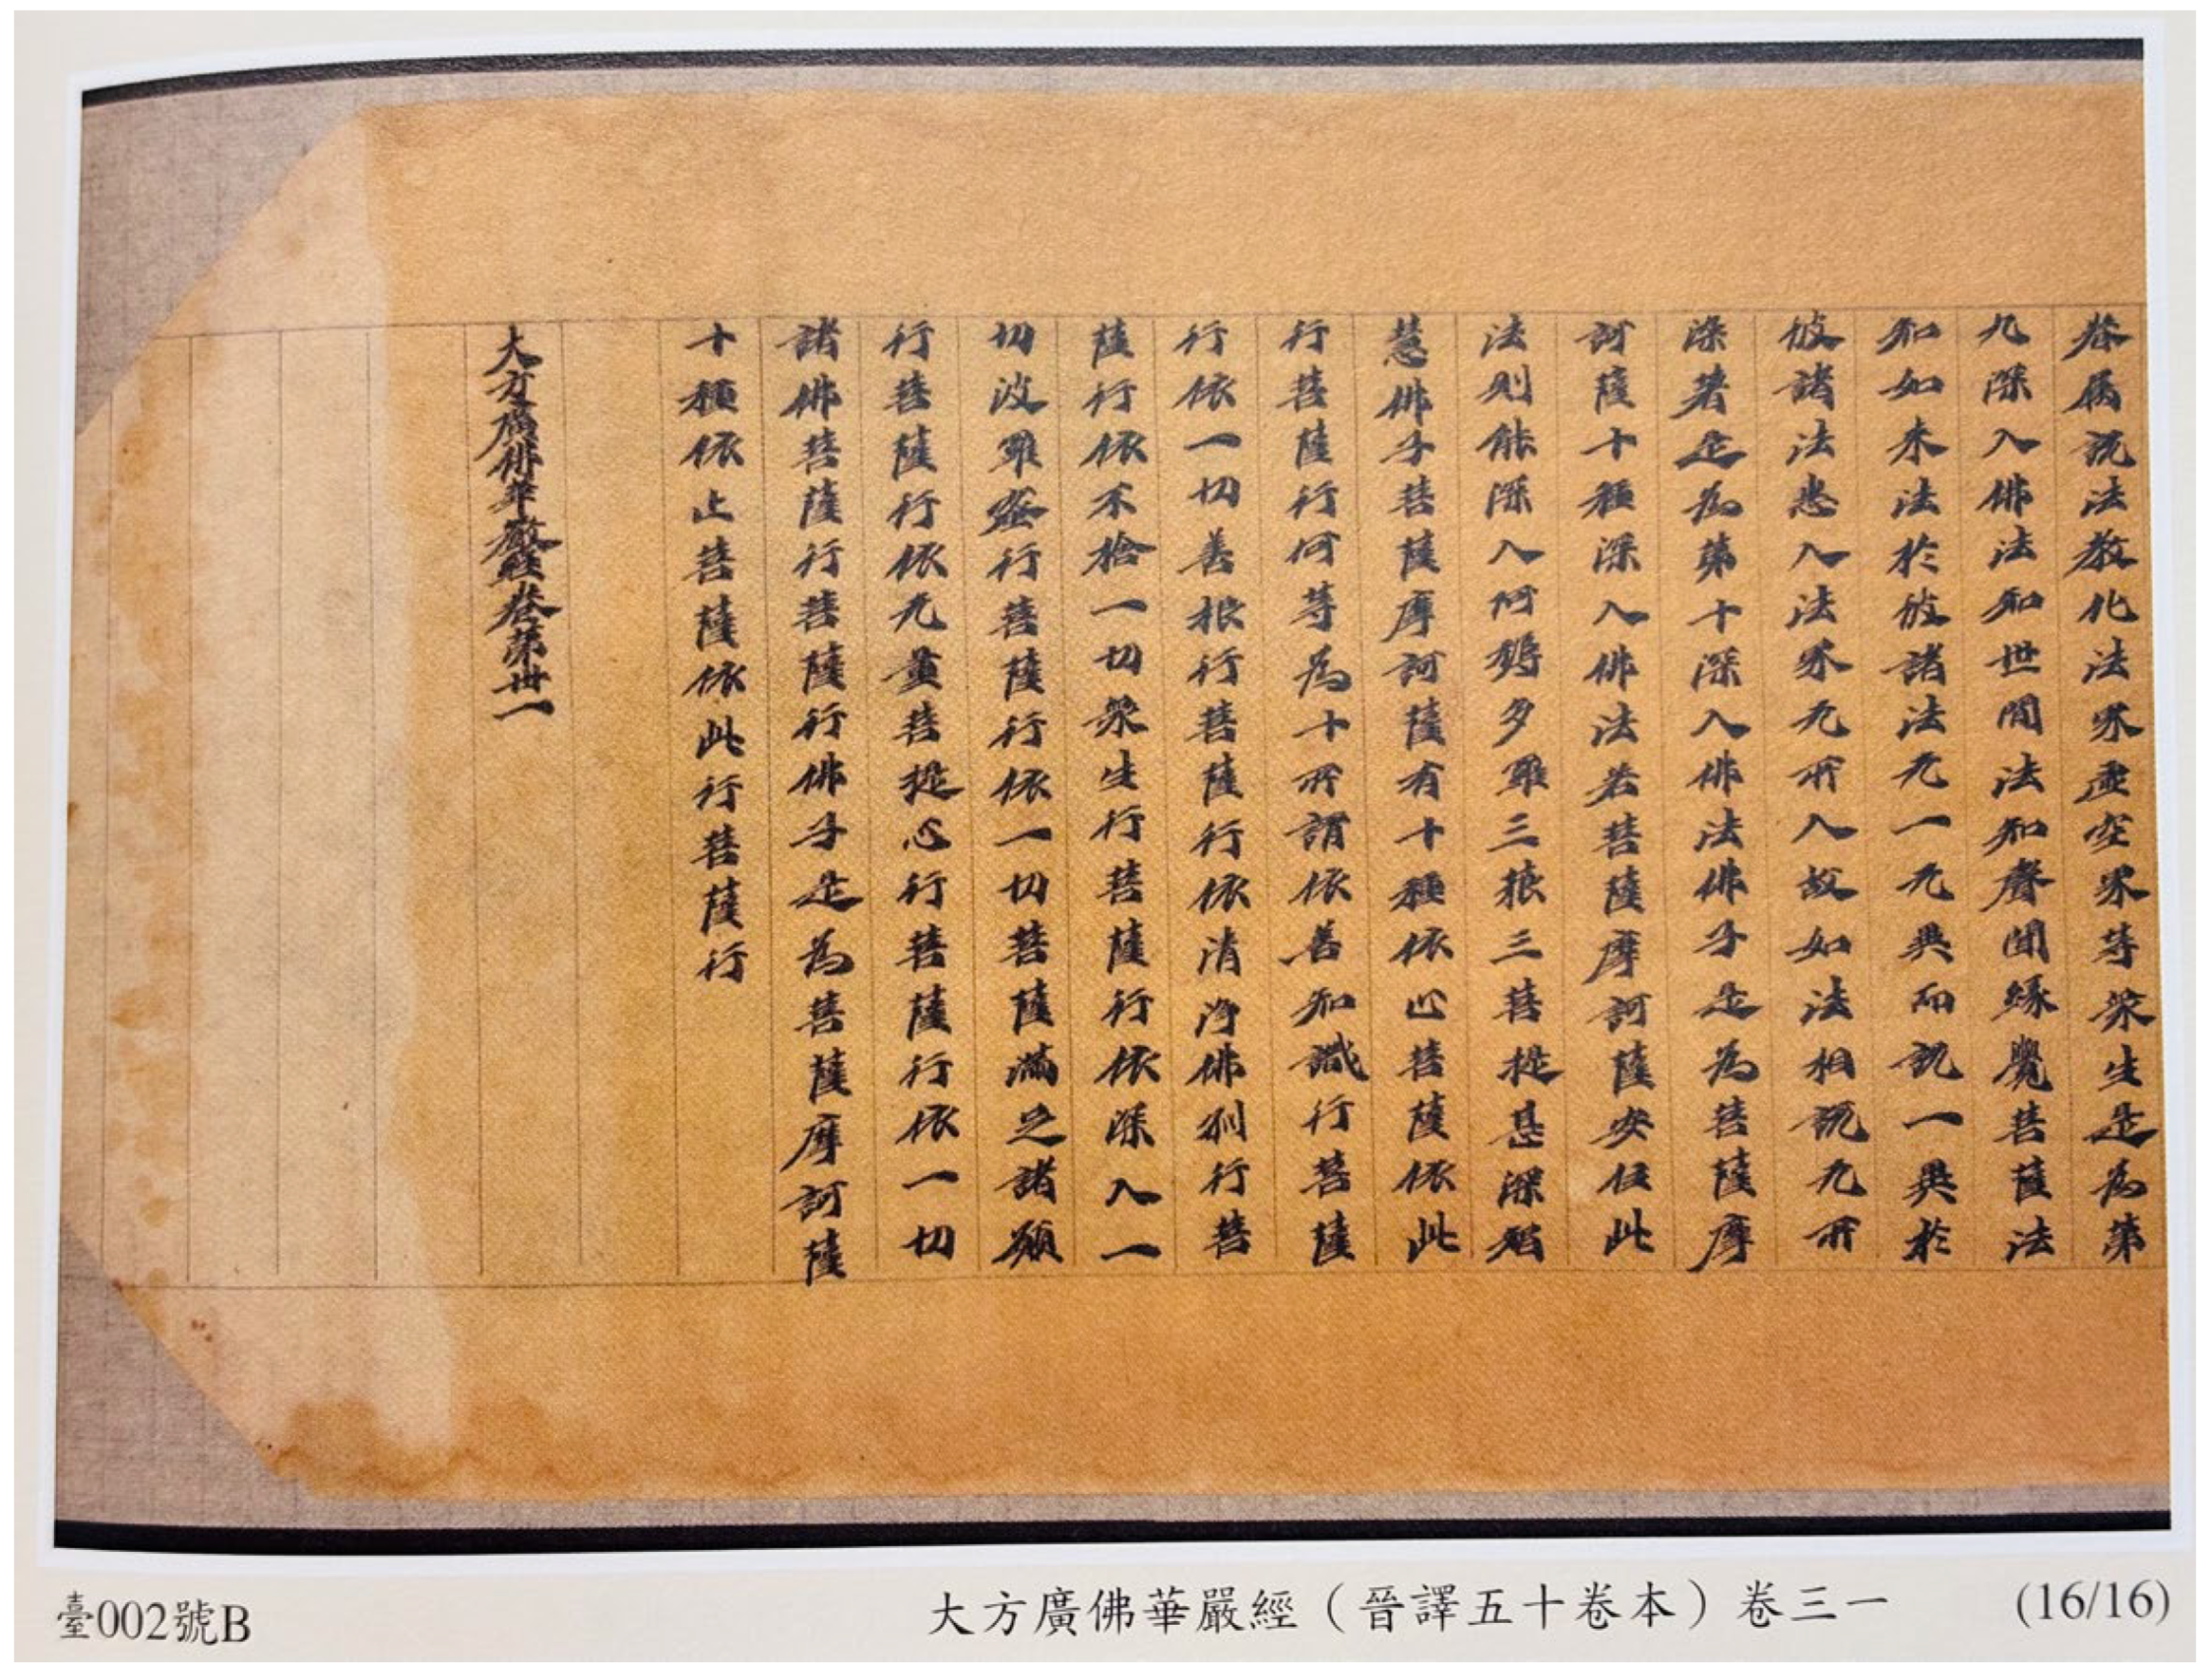 眷屬説法教化法界虛空界等衆生是為第
九深入佛法知世間法知聲聞緣覺菩薩法
知如来法於彼諸法无一无異而説一異於
彼諸法悉入法界无所入故如法相説无所
染著是為第十深入佛法佛子是為菩薩摩
訶薩十種深入佛法若菩薩摩訶薩安住此
法則能深入阿耨多羅三藐三菩提甚深智
慧佛子菩薩摩訶薩有十種依心菩薩依此
行菩薩行何等為十所謂依善知識行菩薩
行依一切善根行菩薩行依清淨佛刹行菩
薩行依不捨一切衆生行菩薩行依深入一
切波羅蜜行菩薩行依一切菩薩滿足諸願
行菩薩行依无量菩提心行菩薩行依一切
諸佛菩薩行菩薩行佛子是為菩薩摩訶薩
十種依止菩薩依此行菩薩行
大方廣佛華嚴經卷第卅一
臺002號B
大方廣佛華嚴經（晉譯五十卷本）卷三一
(16/16)